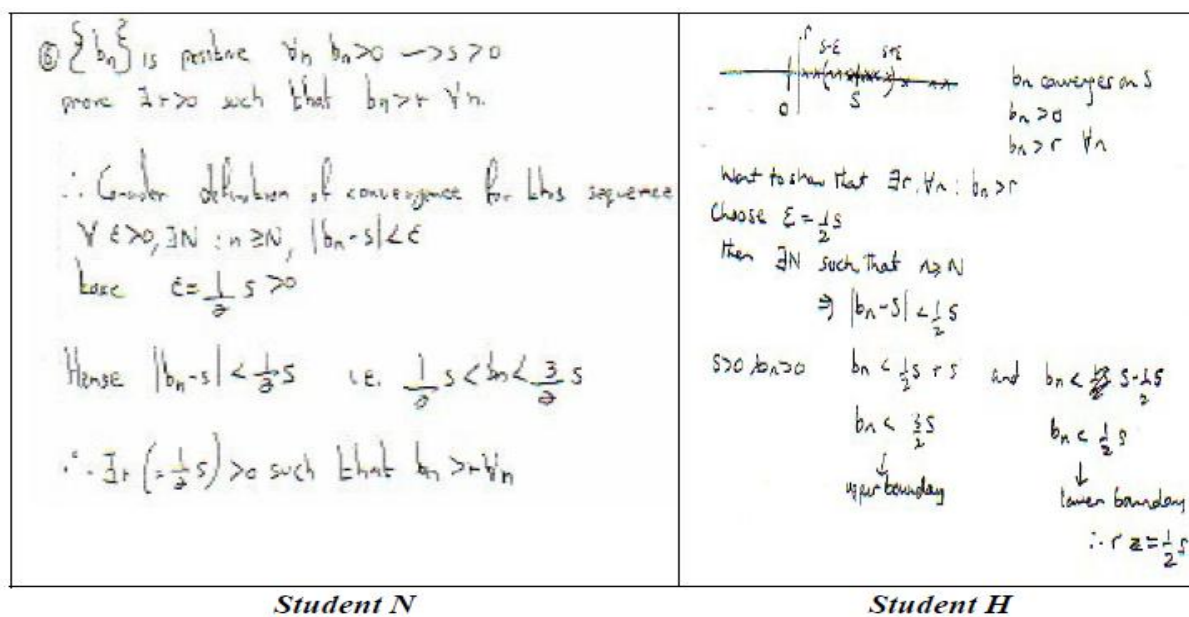 ⑥ {bn} is positive ∀n bn>0 —>s>0
prove ∃r>0 such that bn>r ∀n.
∴ Consider definition of convergence for this sequence
∀ ε>0, ∃N : n≥N, |bn-s|<ε
take ε=1/2 s>0
Hense |bn-s| < 1/2 s i.e. 1/2 s < bn < 3/2 s
∴ ∃r (=1/2 s) >0 such that bn >r ∀n
r
s-ε s+ε
0 S
bn converges on S
bn >0
bn >r ∀n
Want to show that ∃r, ∀n : bn >r
Choose ε=1/2 s
then ∃N such that n≥N
⇒ |bn-S| < 1/2 s
s>0 bn>0 bn < 1/2 s + s and bn < s-1/2 s
bn < 3/2 s bn < 1/2 s
↓ ↓
upper boundary lower boundary
∴ r = 1/2 s
Student N Student H